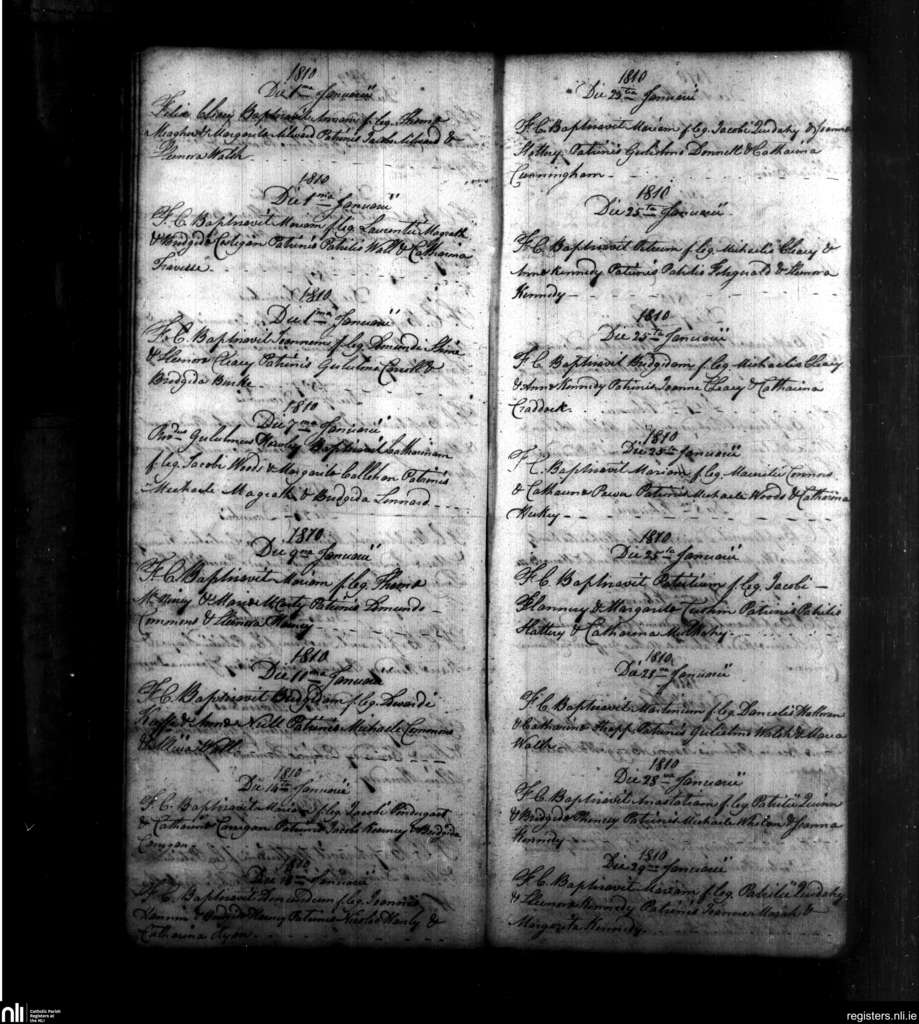 1810
Die 1ma Januarii
Felix Cleary Baptizavit Mariam f. leg. Thomae
Meagher & Margarita Aylward Patrinis &
Elenora Walsh
1810
Die 1ma Januarii
F. C. Baptizavit Mariam f. leg. Laurentii Magrath
& Bridgida Costigan Patrinis Patritio Wall & Catharina
Traverse
1810
Die 1ma Januarii
F. C. Baptizavit Joannem f. leg. Edmundi Shine
& Elenora Cleary Patrinis Gulielmo Carroll &
Bridgida Burke
1810
Die 7ma Januarii
Rvdus Gulielmus Baptizavit Catharinam
f. leg. Jacobi Woods & Margarita Callehan Patrinis
Michaele Magrath & Bridgida Lennard
1810
Die 9na Januarii
F. C. Baptizavit Mariam f. leg. Thomae
& Maria Patrinis Edmundo
Commons & Elenora
1810
Die Januarii
F. C. Baptizavit Bridgidam f. leg. Edwardi
& Anna Neill Patrinis Michaele Commons
& Wall
1810
Die 14ta Januarii
F. C. Baptizavit Mariam f. leg. Jacobi Prendergast
& Catharina Corrigan Patrinis Jacobo Kearney & Bridgida
Corrigan
1810
Die Januarii
F. C. Baptizavit f. leg. Joannis
& Bridgida Patrinis Nicolao Hanly &
Catharina Ryan
1810
Die 25ta Januarii
F. C. Baptizavit Mariam f. leg. Jacobi Dudahy & Joanna
Slattery Patrinis Gulielmo Donnell & Catharina
Cunningham
1810
Die 25ta Januarii
F. C. Baptizavit Petrum f. leg. Michaelis Cleary &
Anna Kennedy Patrinis Patritio Fitzgerald & Elenora
Kennedy
1810
Die 25ta Januarii
F. C. Baptizavit Bridgidam f. leg. Michaelis Cleary
& Anna Kennedy Patrinis Joanne Cleary & Catharina
Craddock
1810
Die 25ta Januarii
F. C. Baptizavit Mariam f. leg. Mauritii Connors
& Catharina Power Patrinis Michaele Woods & Catharina
Hickey
1810
Die 25ta Januarii
F. C. Baptizavit Patritium f. leg. Jacobi
Flannery & Margarita Patrinis Patritio
Slattery & Catharina Mulkahy
1810
Die 28va Januarii
F. C. Baptizavit Martinum f. leg. Danielis
& Catharina Patrinis Gulielmo Walsh & Maria
Walsh
1810
Die 28va Januarii
F. C. Baptizavit Anastatiam f. leg. Patritii Quinn
& Bridgida Patrinis Michaele Whelan & Joanna
Kennedy
1810
Die 29na Januarii
F. C. Baptizavit Mariam f. leg. Patritii Dudahy
& Elenora Kennedy Patrinis Joanne &
Margarita Kennedy
nli
Catholic Parish
Registers at
the NLI
registers.nli.ie